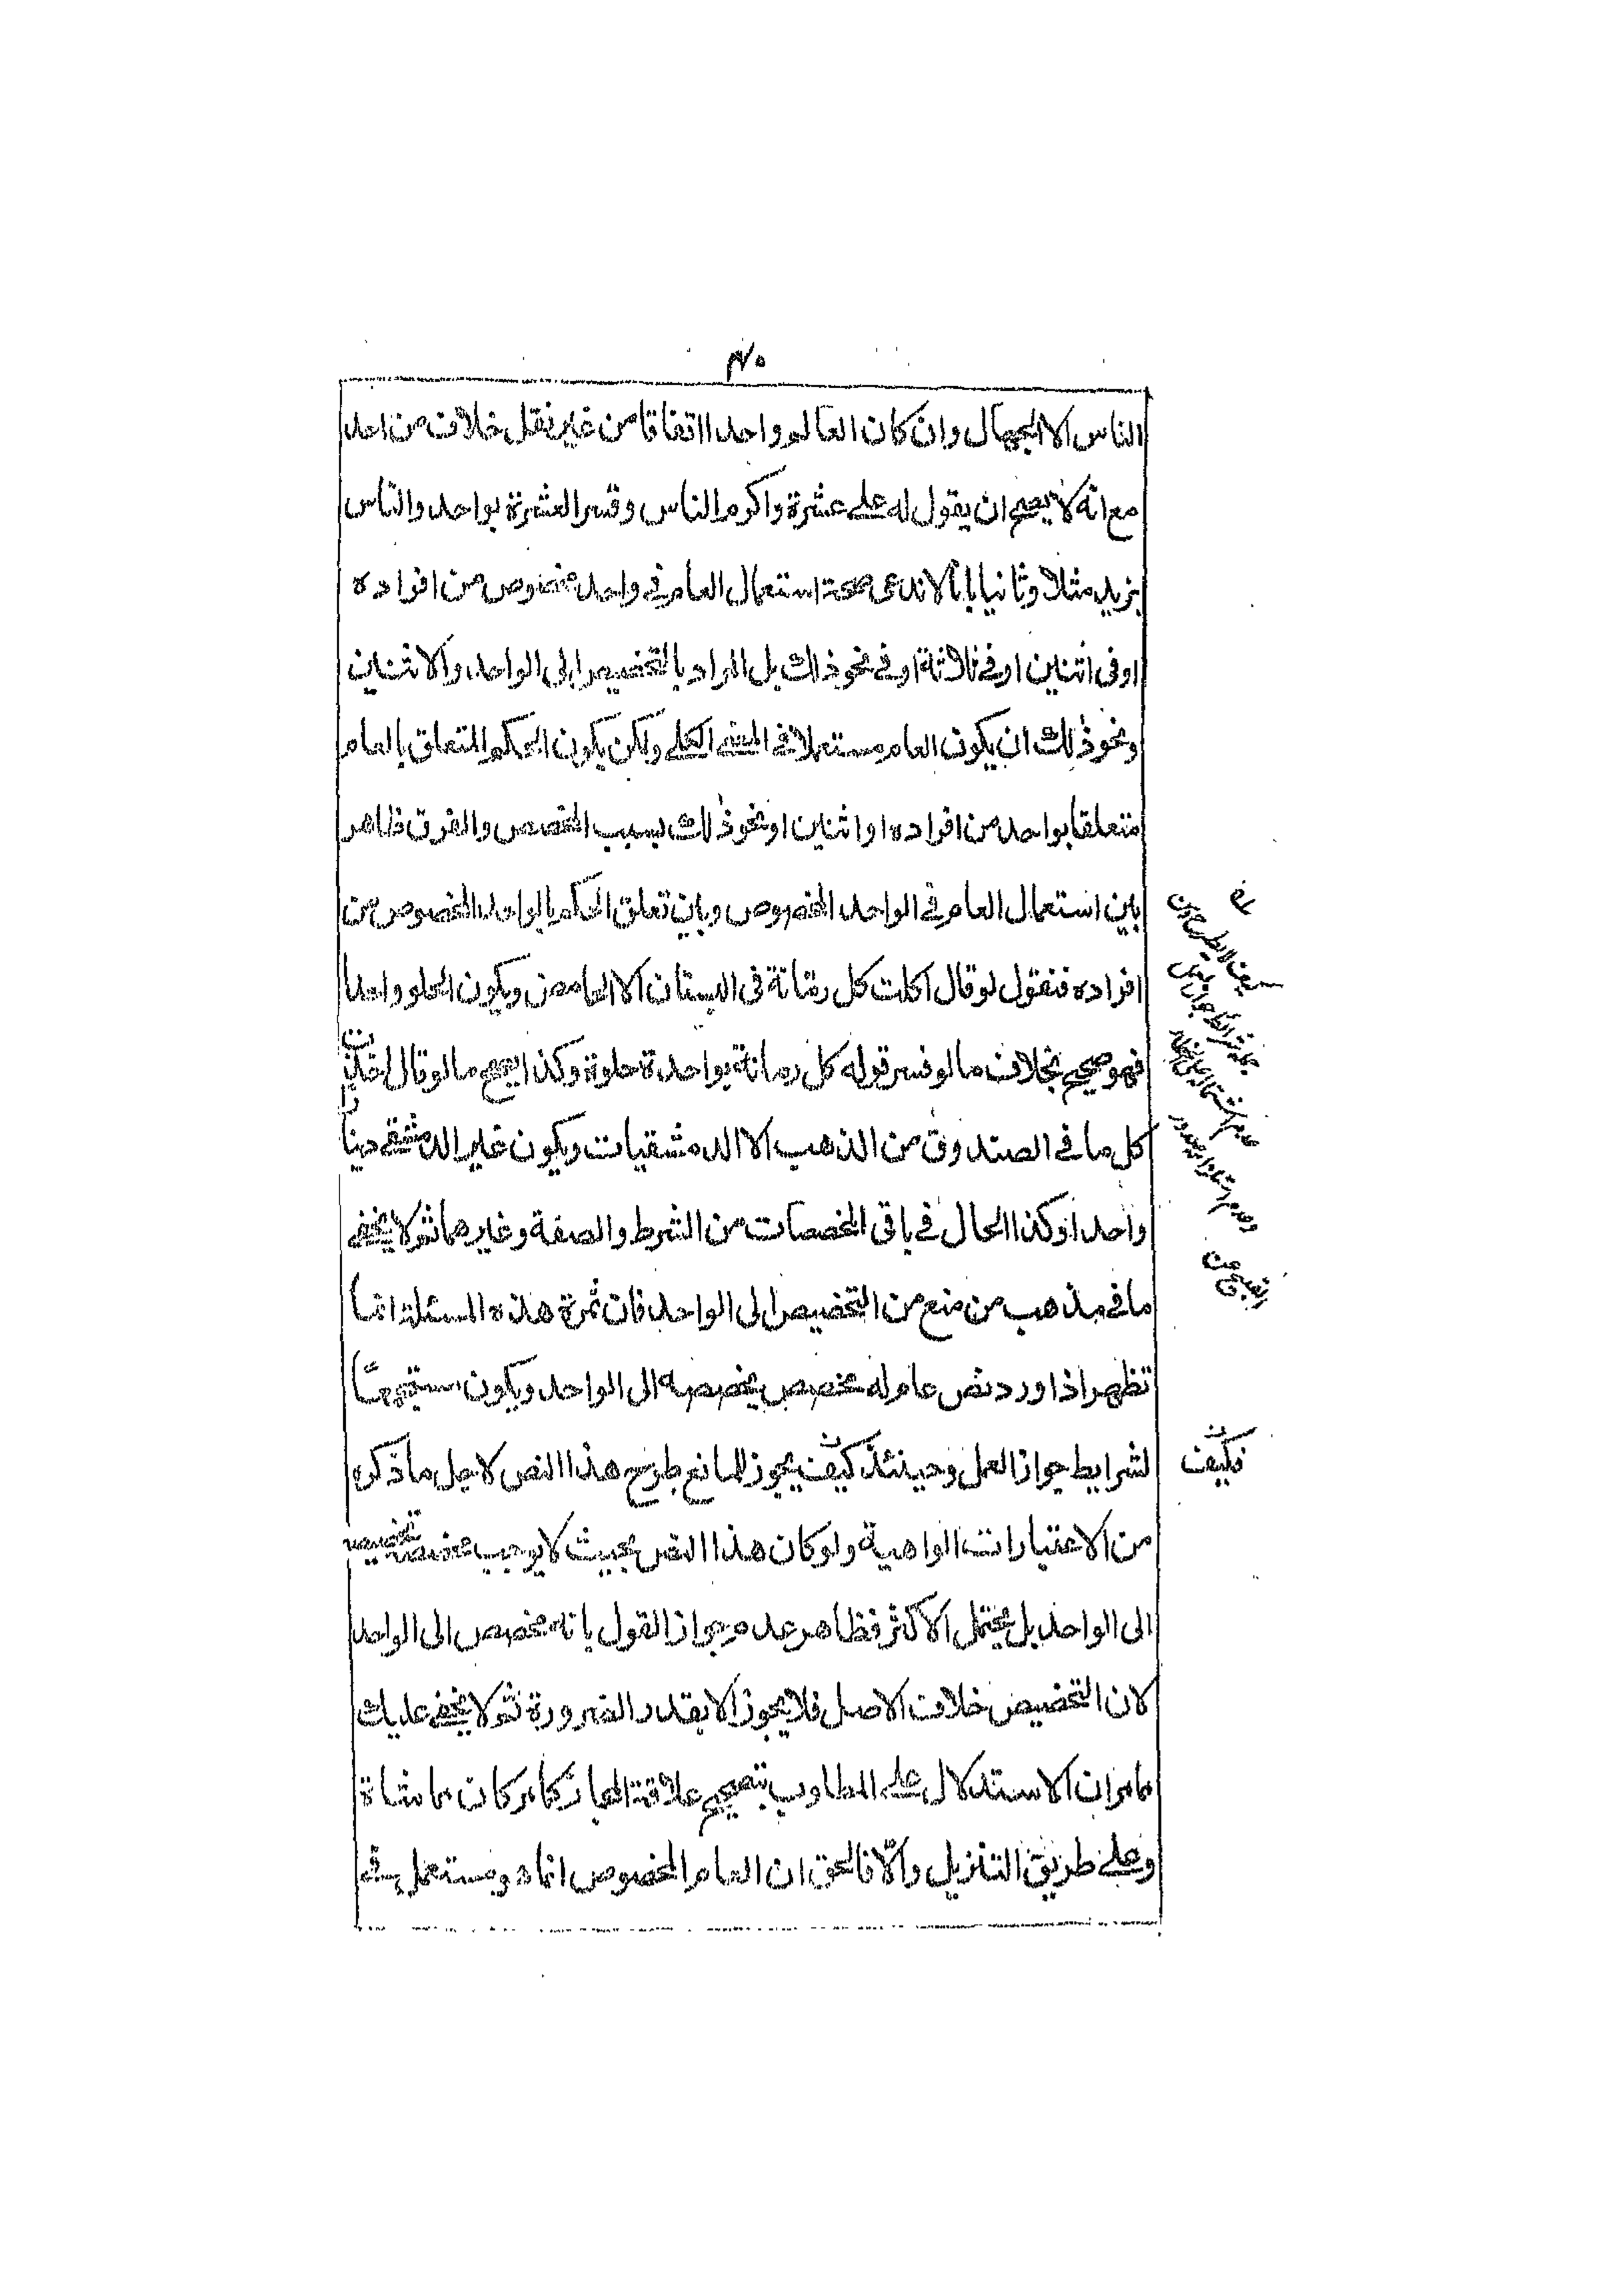 الناس الا الجهال وان كان العالم واحدا اتفاقا من غير نقل خلاف من احد
مع انه لا يصح ان يقول له على عشرة واكرم الناس وفسر العشرة بواحد والناس
بزيد مثلا وثانيا بانا لا ندعى صحة استعمال العام فى واحد مخصوص من افراده
او فى اثنين او فى ثلاثة او فى نحو ذلك بل المراد بالتخصيص الى الواحد والاثنين
ونحو ذلك ان يكون العام مستعملا فى المعنى الكلى ولكن يكون الحكم المتعلق بالعام
متعلقا بواحد من افراده او اثنين او نحو ذلك بسبب المخصص والفرق ظاهر
بين استعمال العام فى الواحد المخصوص وبين تعلق الحكم بالواحد المخصوص من
افراده فنقول لو قال اكلت كل رمانة فى البستان الا الحامض ويكون الحلو واحدا
فهو صحيح بخلاف ما لو فسر قوله كل رمانة بواحدة حلوة وكذا يصح ما لو قال اخذت
كل ما فى الصندوق من الذهب الا الدمشقيات ويكون غير الدمشقى دينارا
واحدا وكذا الحال فى باقى المخصصات من الشرط والصفة وغيرهما ثم لا يخفى
ما فى مذهب من منع من التخصيص الى الواحد فان ثمرة هذه المسئلة انما
تظهر اذا ورد نص عام وله مخصص يخصصه الى الواحد ويكون مستجمعا
لشرايط جواز العمل وحينئذ كيف يجوز للمانع طرح هذا النص لاجل ما ذكره
فكيف
من الاعتبارات الواهية ولو كان هذا النص بحيث لا يوجب مخصصه تخصيصه
الى الواحد بل يحتمل الاكثر فظاهر عدم جواز القول بانه مخصص الى الواحد
لان التخصيص خلاف الاصل فلا يجوز الا بقدر الضرورة ثم لا يخفى عليك
مما مر ان الاستدلال على المطلوب بتصحيح علاقة المجاز كما مر كان مماشاة
وعلى طريق التنزيل والا فالحق ان العام المخصوص انما هو مستعمل فى